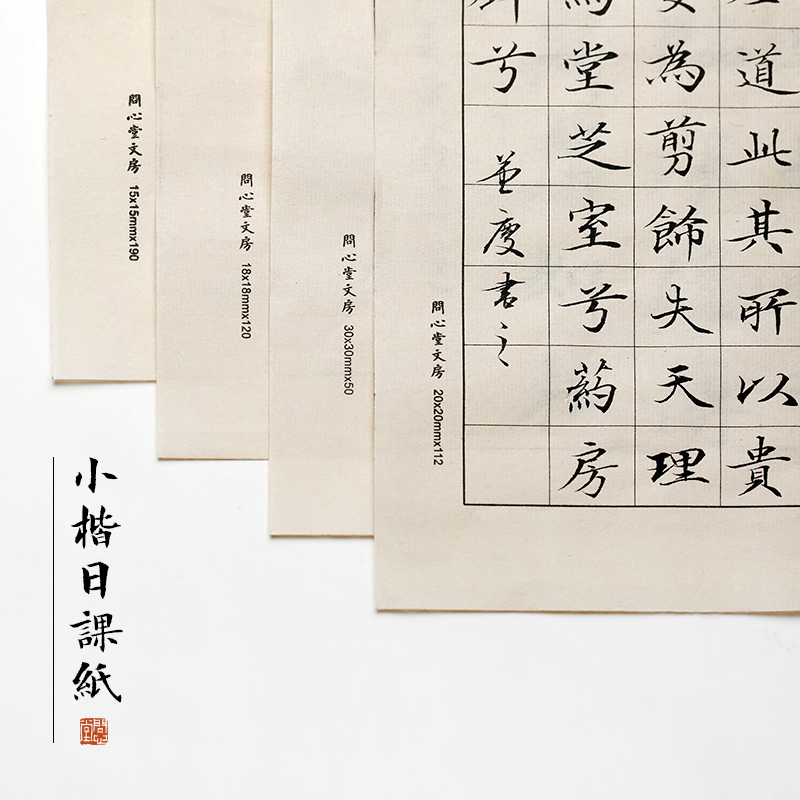 問心堂文房 15x15mmx190
問心堂文房 18x18mmx120
問心堂文房 30x30mmx50
問心堂文房 20x20mmx112
道此其所以貴
為剪飾失天理
堂芝室兮葯房
兮
並書之
小楷日課紙
問心堂